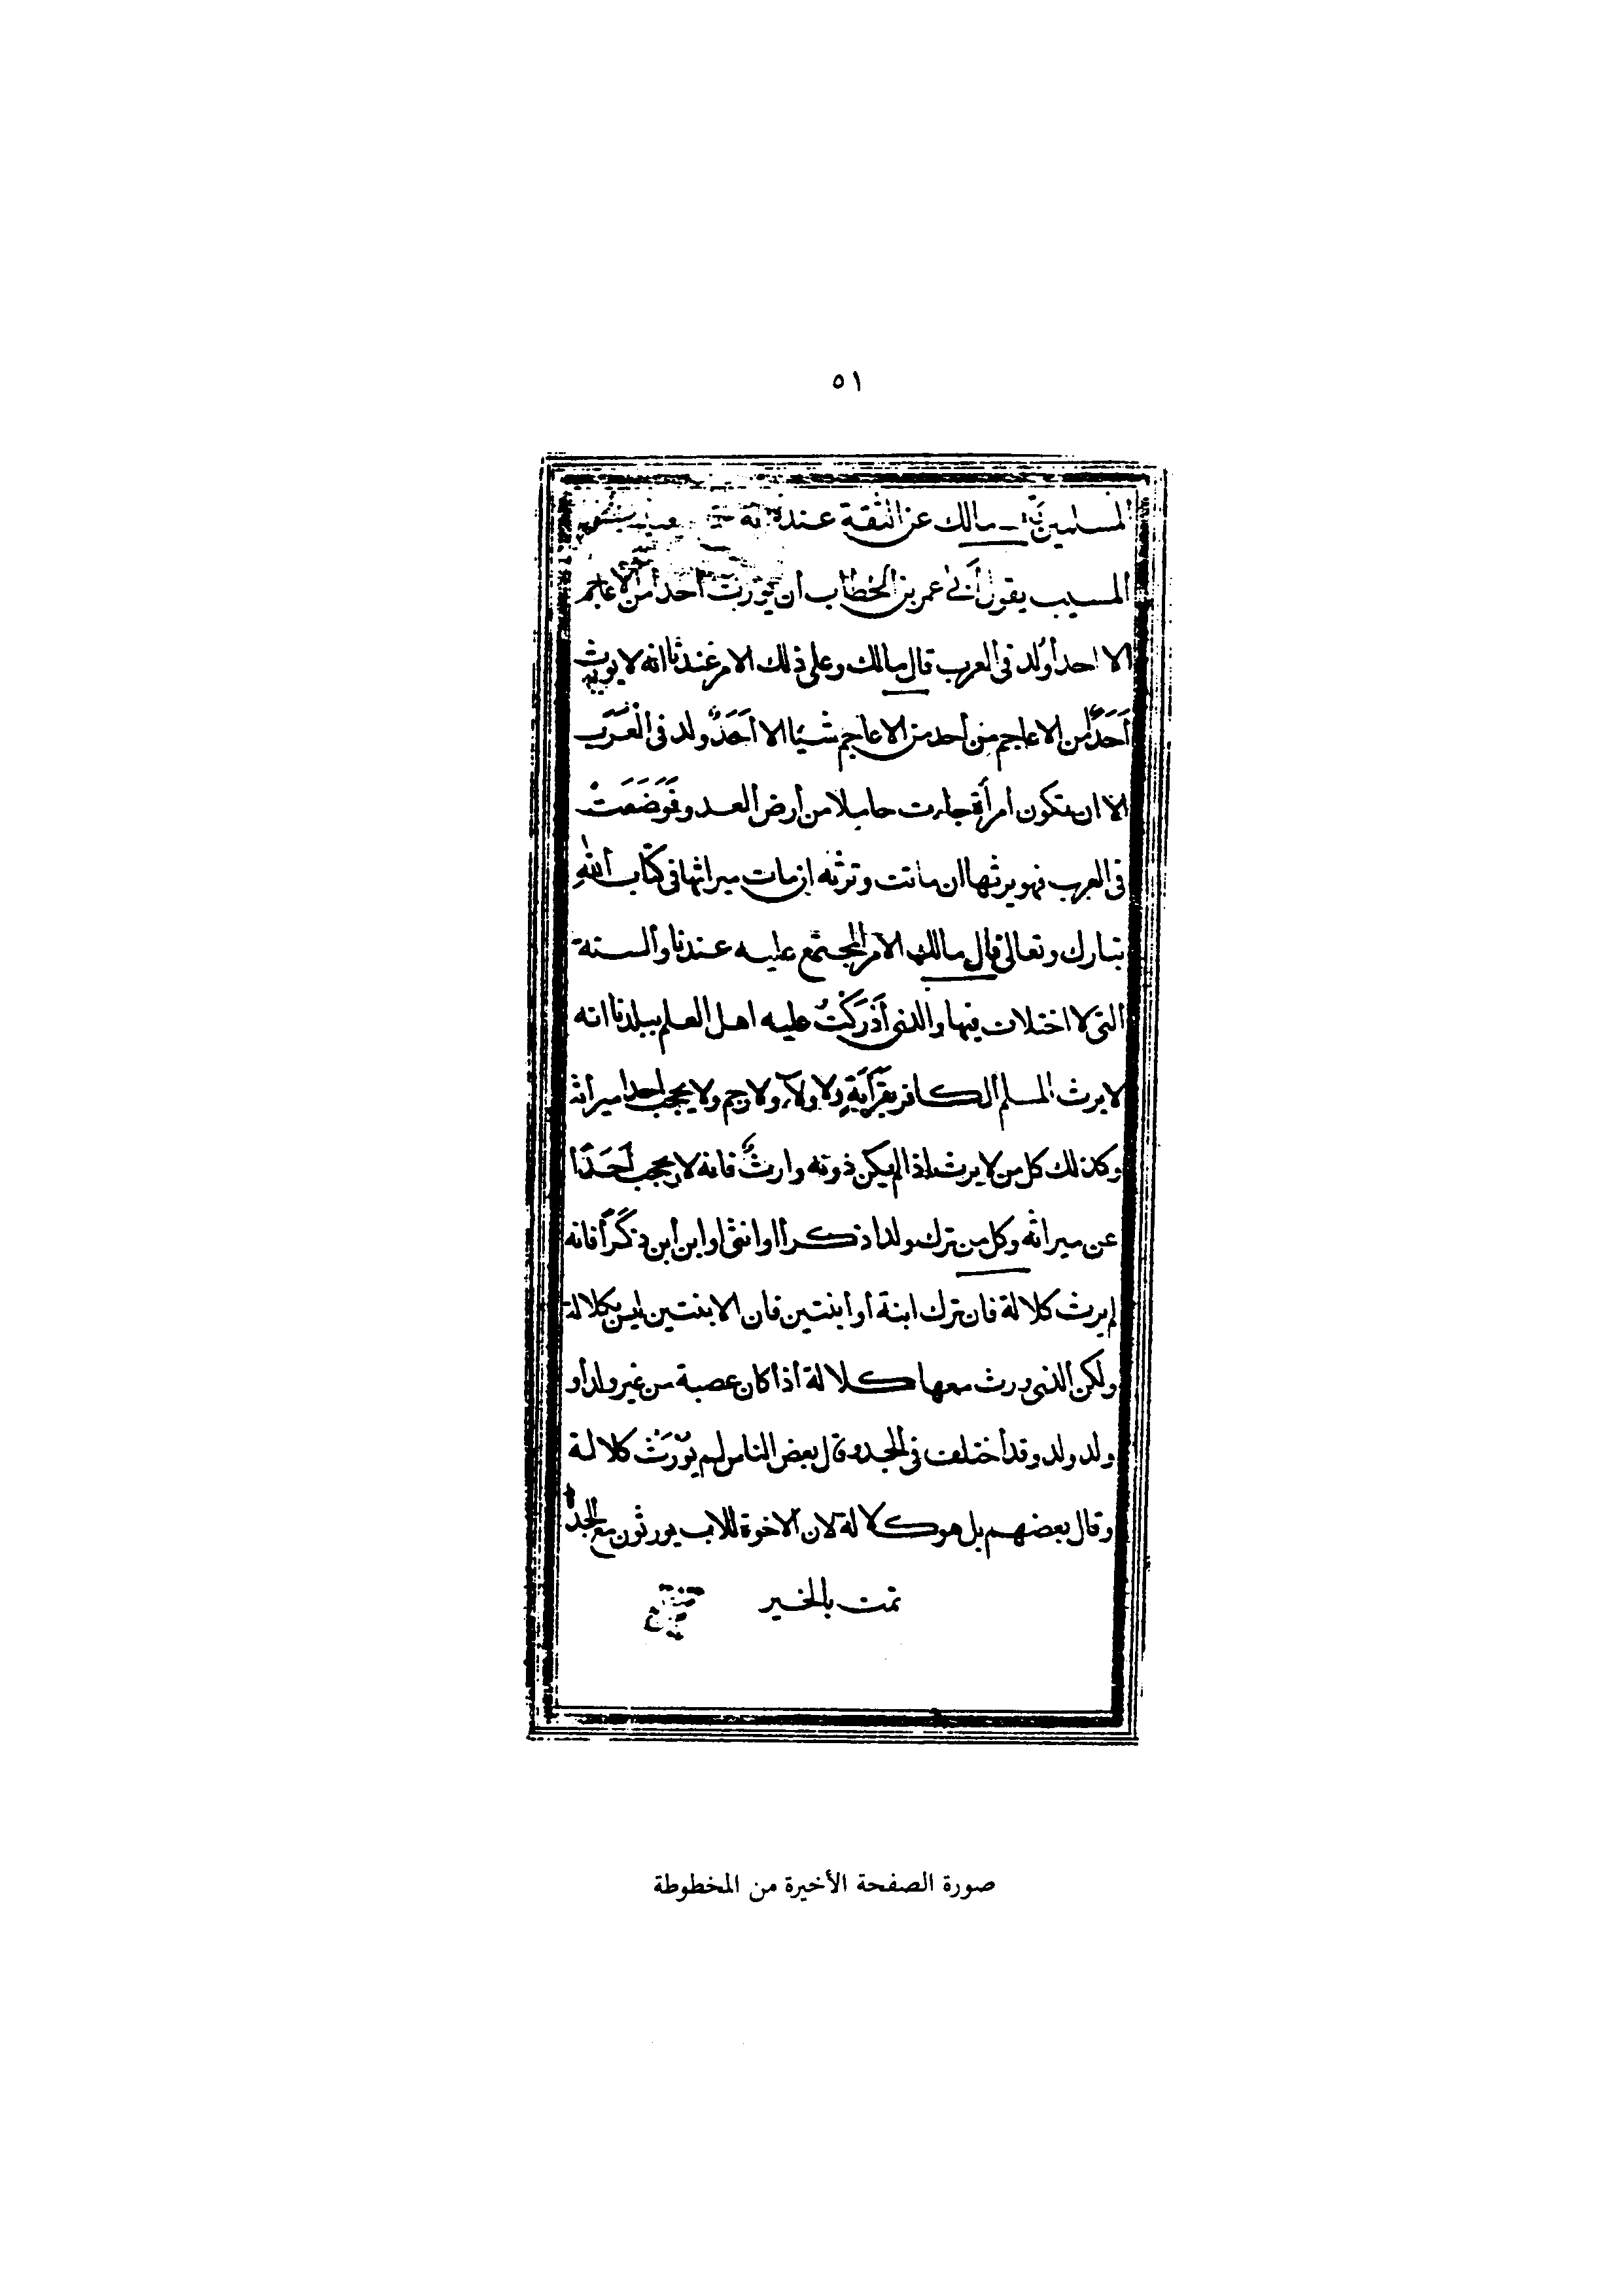 ٥١
المسلمين مالك عن الثقة عنده
المسيب يقول أبى عمر بن الخطاب أن يورث أحدا من الاعاجم
الا احدا ولد فى العرب قال مالك وعلى ذلك الامر عندنا انه لا يورث
أَحَدًا من الاعاجم من أحد من الاعاجم شيئا الا أَحَدٌ ولد فى الْعَرَبِ
الا ان تكون امرأة جاءت حاملا من أرض العدو فَوَضَعَتْ
فى العرب فهو يرثها ان ماتت وترثه ان مات ميراثها فى كتاب الله
تبارك وتعالى قال مالك الامر المجتمع عليه عندنا والسنة
التى لا اختلاف فيها والذى أَدْرَكْتُ عليه اهل العلم ببلدنا انه
لا يرث المسلم الكافر بقَرَابَةٍ ولا ولاء ولا رحم ولا يحجب احدا ميراثه
وكذلك كل من لا يرث اذا لم يكن دونه وارثٌ فانه لا يحجب أَحَدًا
عن ميراثه وكل من ترك ولدا ذكرا او انثى او ابن أبن ذكرًا فانه
لم يرث كلالة فان ترك ابنة أو أبنتين فان الابنتين ليس بكلالة
ولكن الذى ورث معها كلالة أذا كان عصبة من غير ولد أو
ولد ولد وقد أختلف فى الجد وقال بعض الناس لم يُورَثْ كلالة
وقال بعضهم بل هو كلالة لان الاخوة للاب يورثون مع الجد
تمت بالخير
صورة الصفحة الأخيرة من المخطوطة